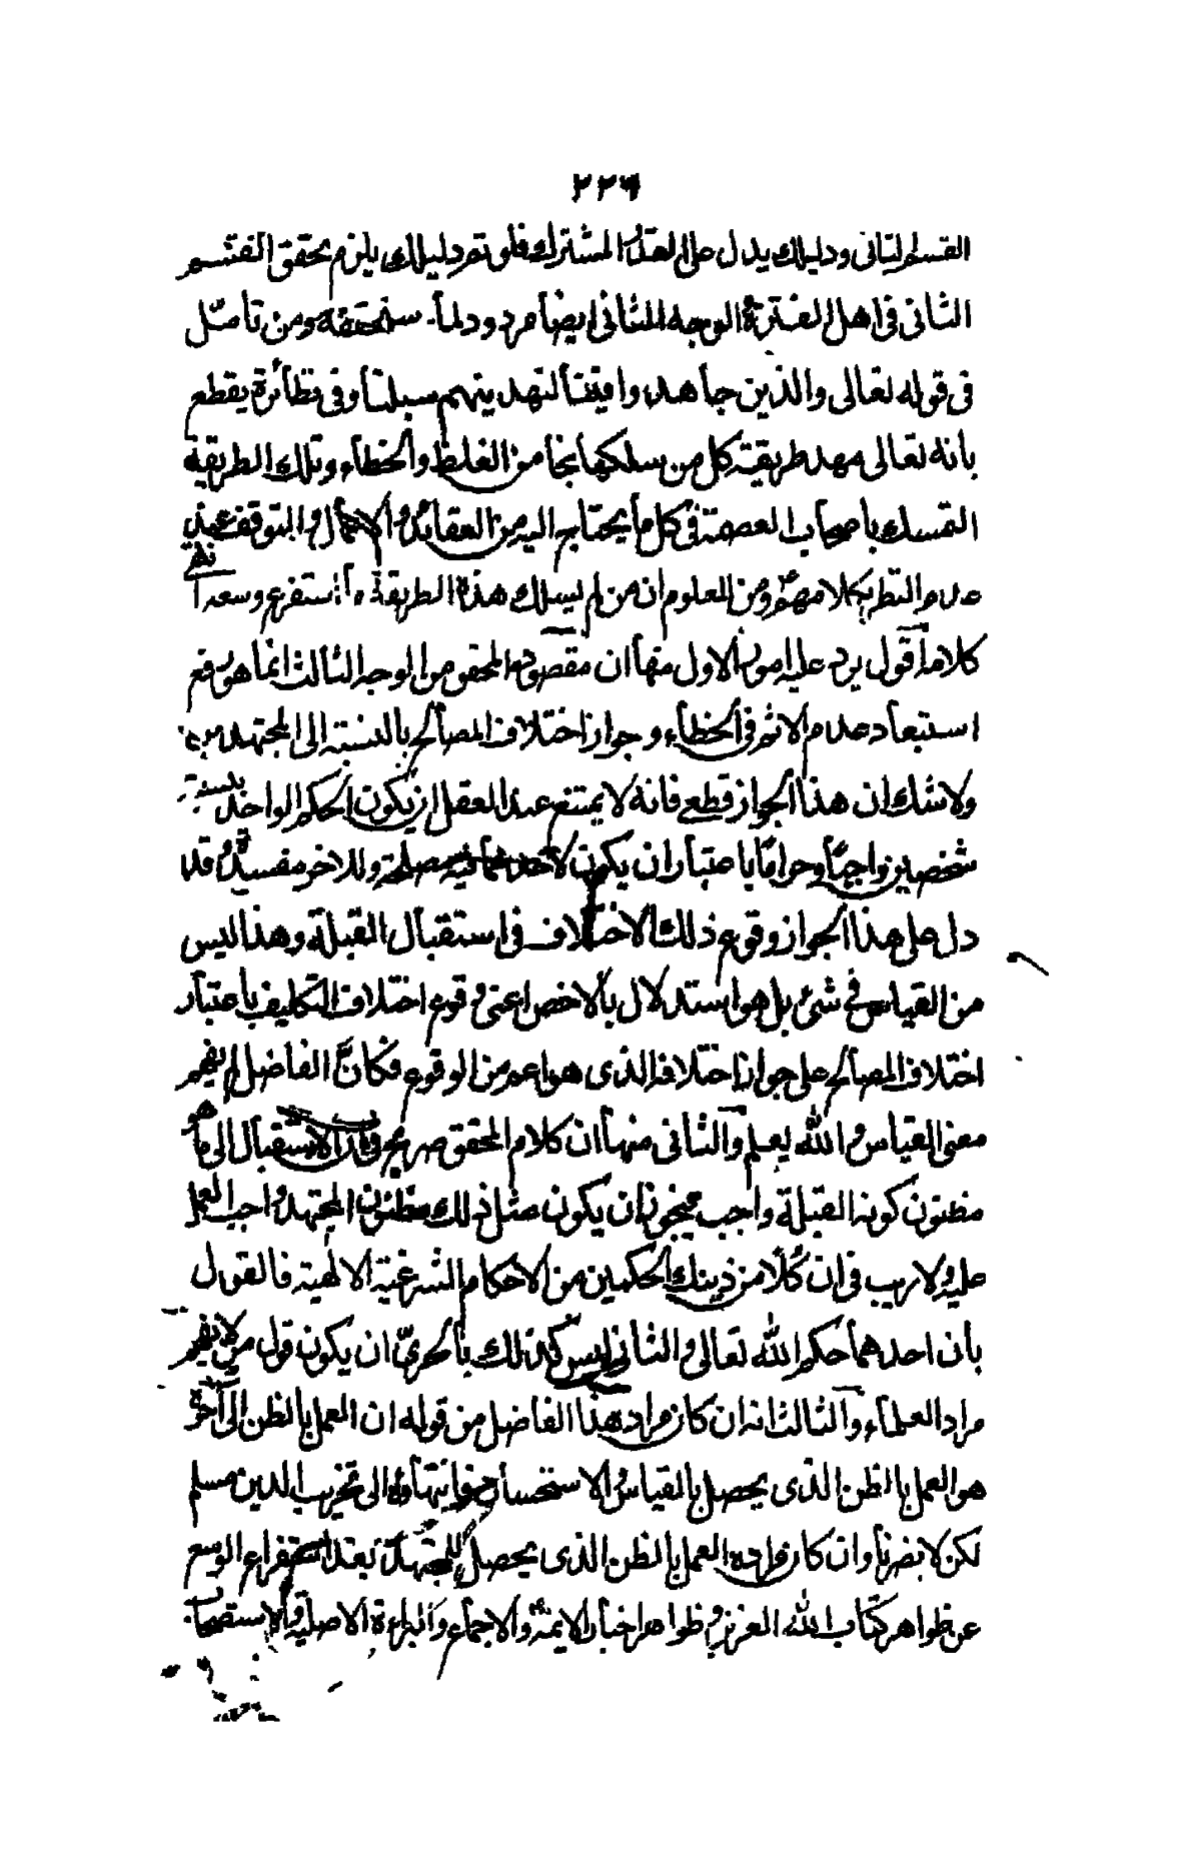 ٢٢٦
القسم الثانى ودليلك يدل على القدر المشترك فلو تم دليلك يلزم تحقق القسم
الثانى فى اهل الفترة الوجه الثانى ايضاً مردود لما سنحققه ومن تأمّل
فى قوله تعالى والذين جاهدوا فينا لنهدينهم سبلنا وفى نظائره يقطع
بانه تعالى مهد طريقة كل من سلكها نجا من الغلط والخطاء وتلك الطريقة
التمسك باصحاب العصمة فى كل ما يحتاج اليه من العقائد والاعمال والتوقف عند
عدم الظفر بكلامهم ومن المعلوم ان من لم يسلك هذه الطريقة ما استفرغ وسعه انتهى
كلامه اقول يرد عليه امور الاول منها ان مقصود المحقق من الوجه الثالث انما هو رفع
استبعاد عدم الاثم فى الخطاء وجواز اختلاف المصالح بالنسبة الى المجتهدين
ولا شك ان هذا الجواز قطعى فانه لا يمتنع عند العقل ان يكون الحكم الواحد بالنسبة
شخصين واجباً وحراماً باعتبار ان يكون لاحدهما فيه مصلحة وللاخر مفسدة وقد
دل على هذا الجواز وقوع ذلك الاختلاف فى استقبال القبلة وهذا ليس
من القياس فى شئ بل هو استدلال بالاخص اعنى وقوع اختلاف التكليف باعتبار
اختلاف المصالح على جواز اختلافه الذى هو اعم من الوقوع فكانّ الفاضل لم يفهم
معنى القياس والله يعلم والثانى منها ان كلام المحقق صريح فى ان الاستقبال الى ما هو
مظنون كونه القبلة واجب فيجوز ان يكون مثل ذلك مظنون المجتهد واجب العمل
عليه ولا ريب فى ان كلّاً من ذينك الحكمين من الاحكام الشرعية الالهية فالقول
بان احدهما حكم الله تعالى والثانى ليس كذلك بالحرىّ ان يكون قول من لا يفهم
مراد العلماء والثالث انه ان كان مراد هذا الفاضل من قوله ان العمل بالظن الى آخره
هو العمل بالظن الذى يحصل بالقياس والاستحسان فانتهاؤه الى تخريب الدين مسلم
لكن لا يضرنا وان كان مراده العمل بالظن الذى يحصل للمجتهد بعد استفراغ الوسع
عن ظواهر كتاب الله العزيز وظواهر اخبار الايمة والاجماع والبراءة الاصلية والاستصحاب